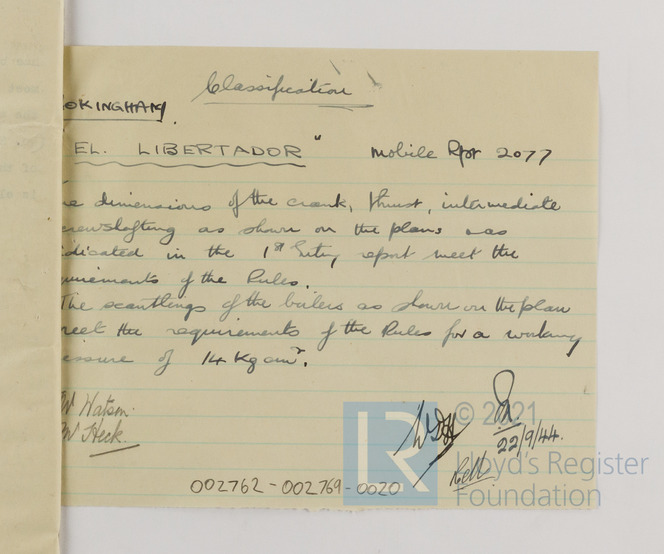 Classification
OKINGHAM.
EL. LIBERTADOR" mobile Rpt 2077
e dimensions of the crank, thrust, intermediate
rewshafting as shown on the plans & as
dicated in the 1st Entry report meet the
quirements of the Rules.
The scantlings of the boilers as shown on the plan
meet the requirements of the Rules for a working
essure of 14 Kg cm².
W Watson.
W Heck.
WDH
22/9/44.
© 2021
LR
Lloyd's Register
Foundation
002762-002769-0020